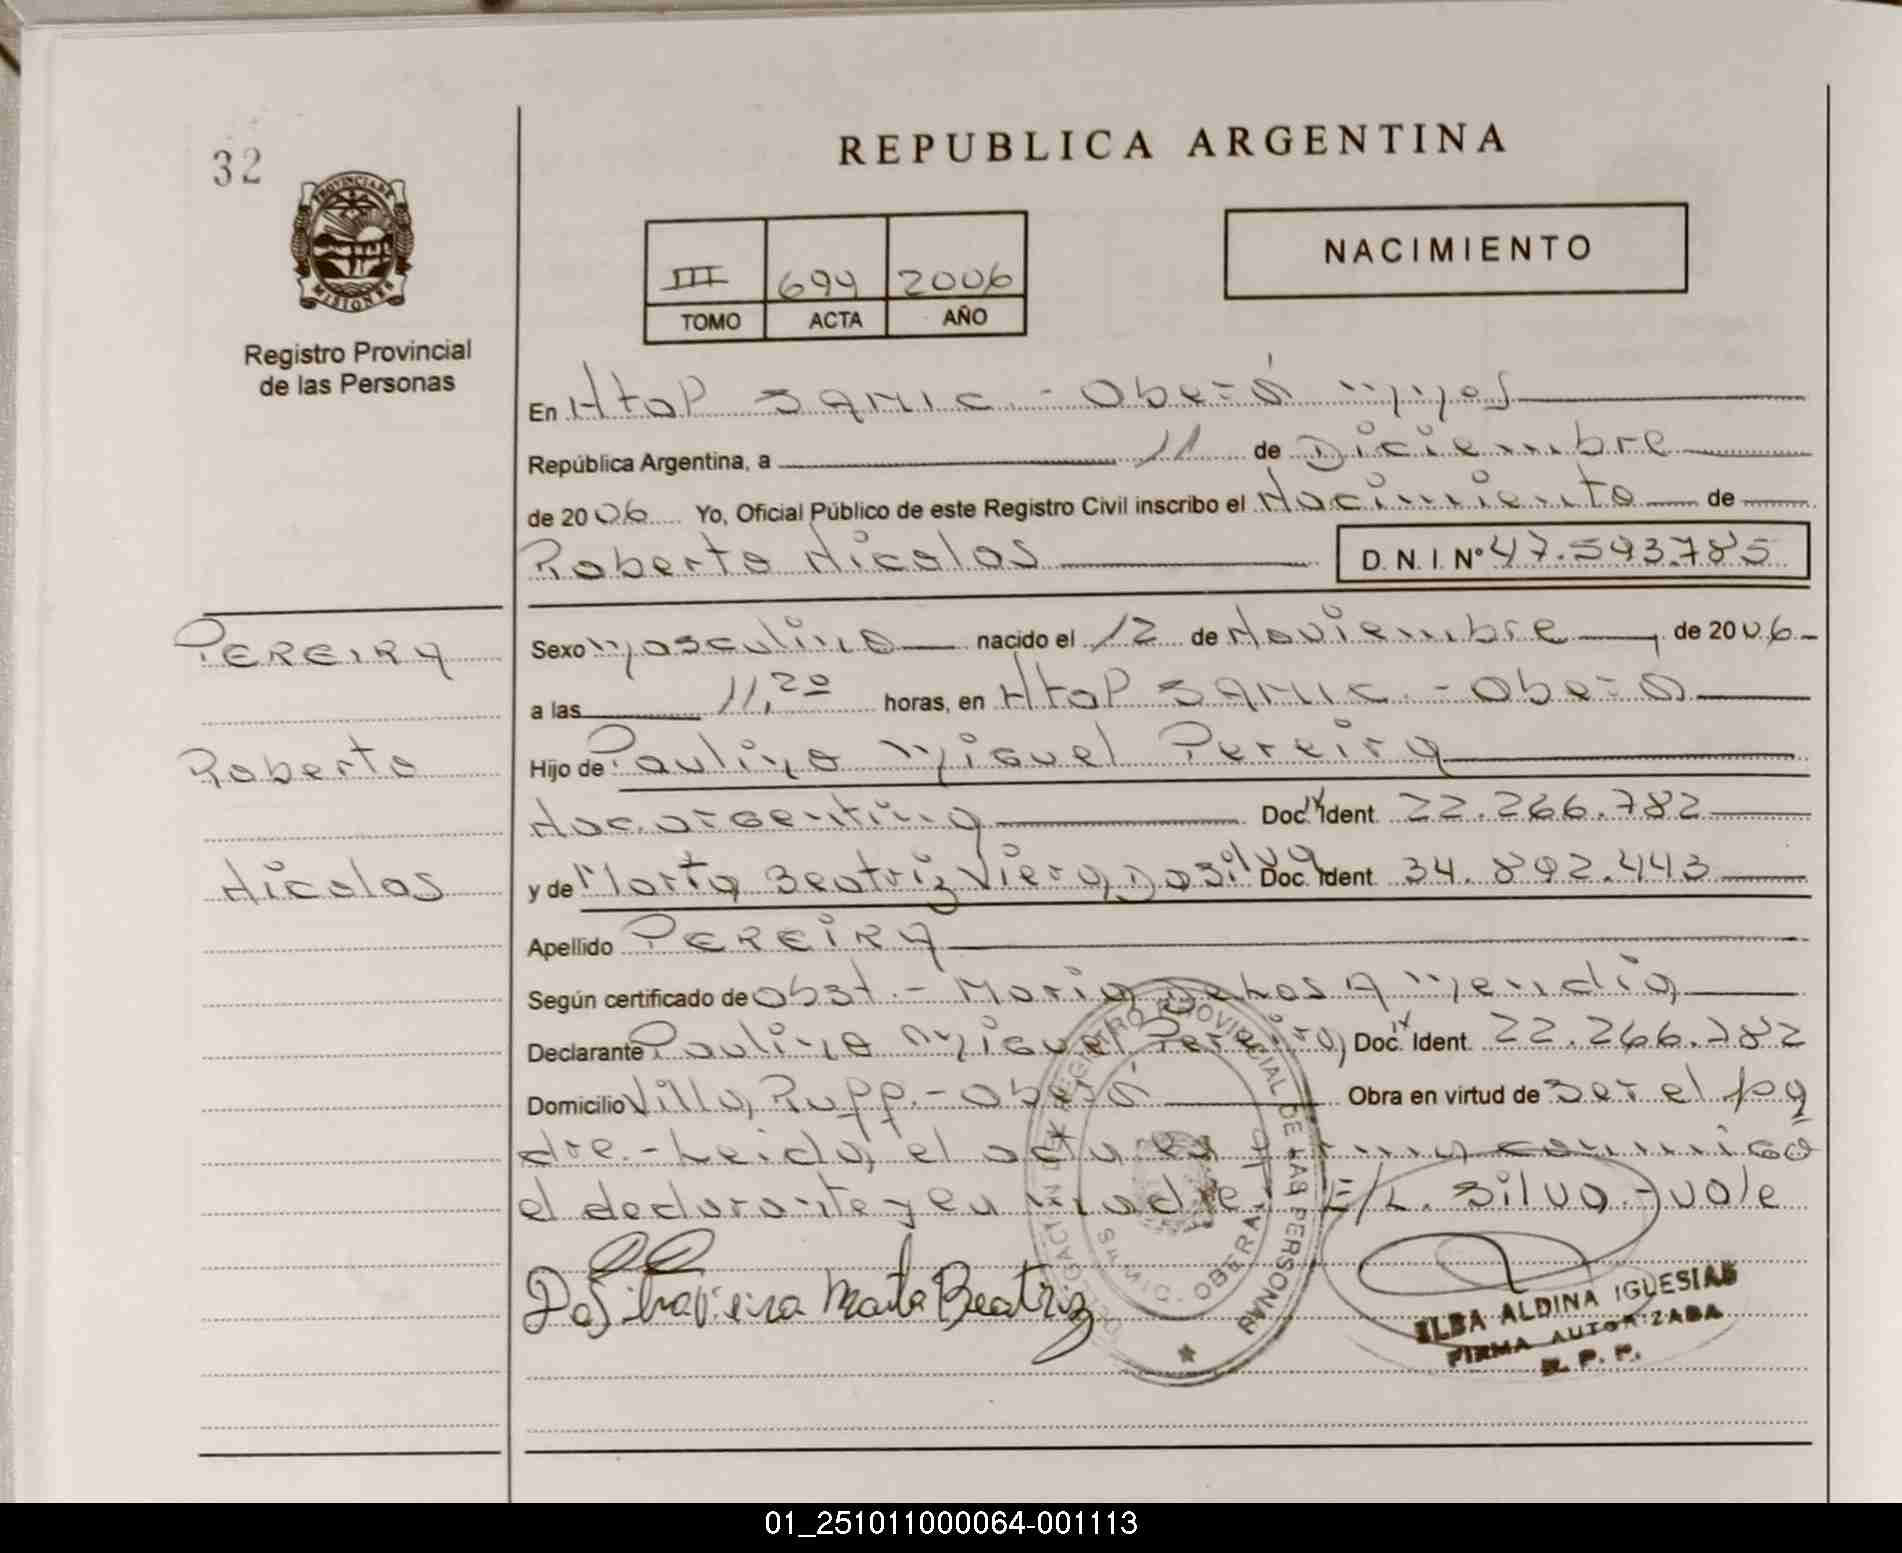 32
REPUBLICA ARGENTINA
PROVINCIA DE
MISIONES
Registro Provincial
de las Personas
III 694 2006
TOMO ACTA AÑO
NACIMIENTO
En Htop SAMIC - Oberá Mnes
República Argentina, a 11 de Diciembre
de 2006 Yo, Oficial Público de este Registro Civil inscribo el Nacimiento de
Roberto Nicolas D.N.I. Nº 47.593.785
PEREIRA
Roberto
Nicolas
Sexo Masculino nacido el 12 de Noviembre, de 2006
a las 11,20 horas, en Htop SAMIC - Oberá
Hijo de Paulino Miguel Pereira
Nac. argentina Doc. Ident. 22.266.782
y de Marta Beatriz Viera Da Silva Doc. Ident. 34.892.443
Apellido PEREIRA
Según certificado de Obst. - Maria De Los A Mendia
Declarante Paulino Miguel Pereira Doc. Ident. 22.266.782
Domicilio Villa Rupp. - Oberá Obra en virtud de Ser el pa
dre. - Leida el acta conmigo
el declarante y madre E/L. Silva - vale
Da Silva Vieira Marta Beatriz
REGISTRO PROVINCIAL DE LAS PERSONAS
SAMIC - OBERA
ELBA ALDINA IGLESIAS
FIRMA AUTORIZADA
R. P. P.
01_251011000064-001113